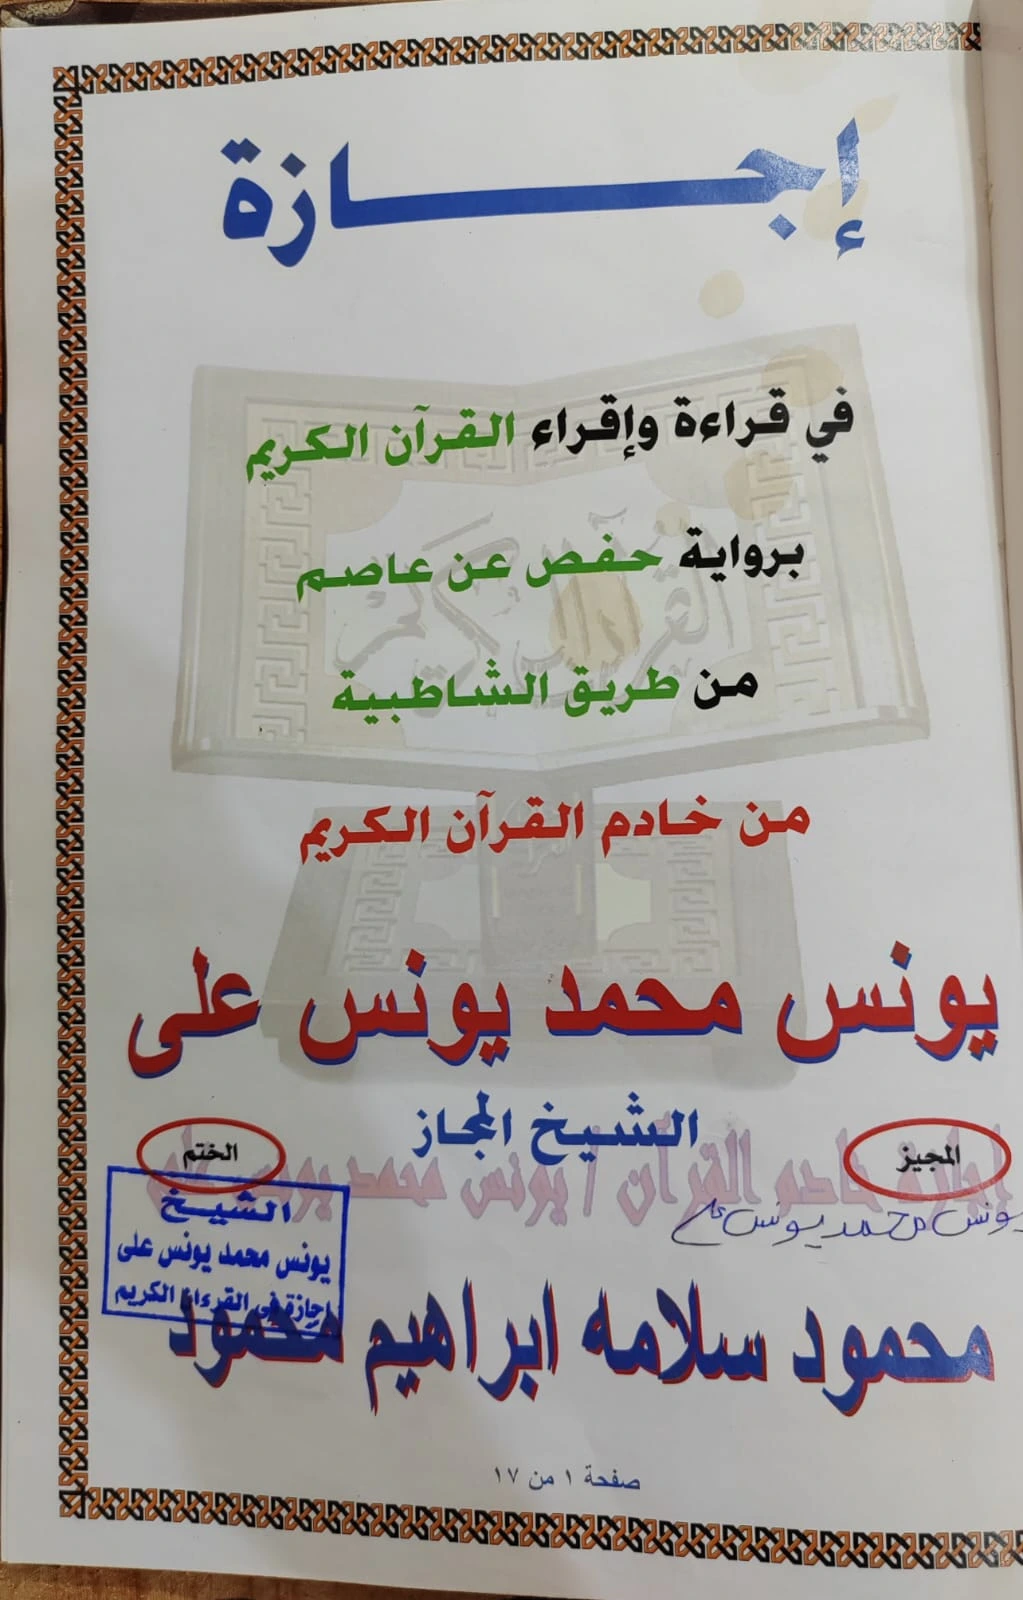 إجازة
في قراءة وإقراء القرآن الكريم
برواية حفص عن عاصم
من طريق الشاطبية
من خادم القرآن الكريم
يونس محمد يونس على
الشيخ المجاز
المجيز
الختم
إجازة خادم القرآن / يونس محمد يونس على
يونس محمد يونس علي
الشيخ
يونس محمد يونس على
إجازة في القرءان الكريم
محمود سلامه ابراهيم محمود
صفحة ١ من ١٧